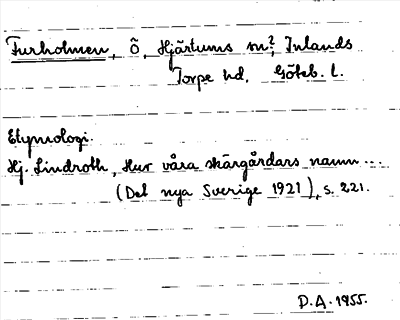 Furholmen, Ö, Hjärtums sn?, Inlands
Torpe hd, Göteb. l.
Etymologi.
Hj. Lindroth, Hur våra skärgårdars namn...
(Det nya Sverige 1921), s. 221.
D.A. 1955.